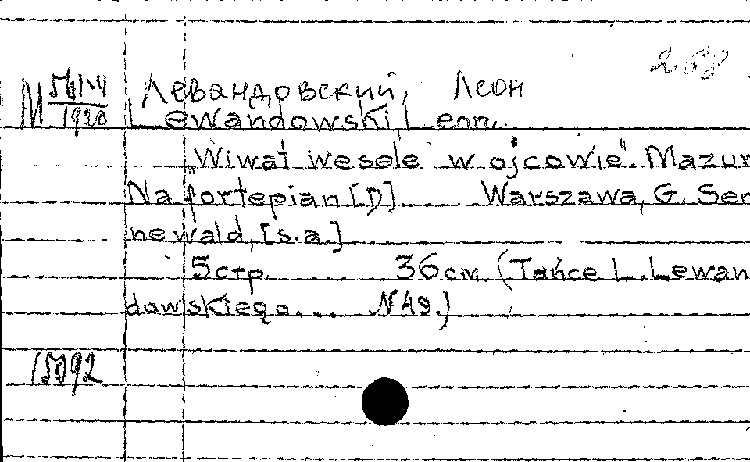 Левандовский, Леон
Lewandowski, Leon.
„Wiwat wesele w ojcowie". Mazur
Na fortepian [D] .... Warszawa, G. Sen
newald, [s.a.]
5 стр. ..... 36 см. (Tańce L. Lewan
dowskiego... N 49.)
15092